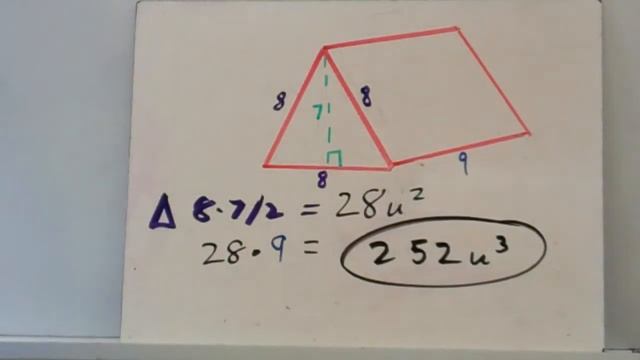 8
8
7
8
9
Δ 8·7/2 = 28u²
28·9 = 252u³